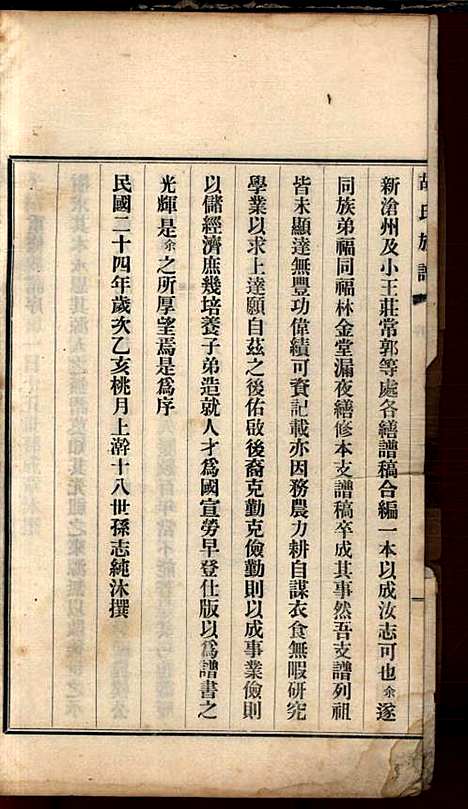 胡氏族譜
新滄州及小王莊常郭等處各繕譜稿合編一本以成汝志可也余遂
同族弟福同福林金堂漏夜繕修本支譜稿卒成其事然吾支譜列祖
皆未顯達無豐功偉績可資記載亦因務農力耕自謀衣食無暇研究
學業以求上達願自茲之後佑啟後裔克勤克儉勤則以成事業儉則
以儲經濟庶幾培養子弟造就人才為國宣勞早登仕版以為譜書之
光輝是余之所厚望焉是為序
民國二十四年歲次乙亥桃月上澣十八世孫志純沐撰